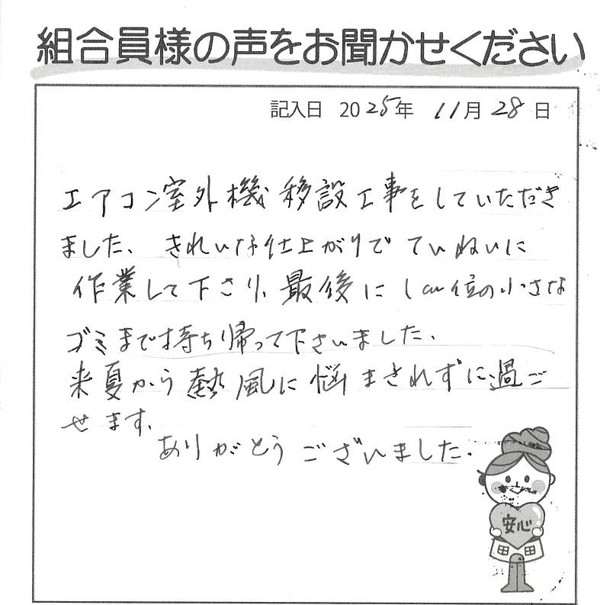 組合員様の声をお聞かせください
記入日 2025年 11月28日
エアコン室外機移設工事をしていただき
ました、きれいな仕上がりでていねいに
作業して下さり、最後に1cm位の小さな
ゴミまで持ち帰って下さいました。
来夏から熱風に悩まされずに過ご
せます。
ありがとうございました。
安心